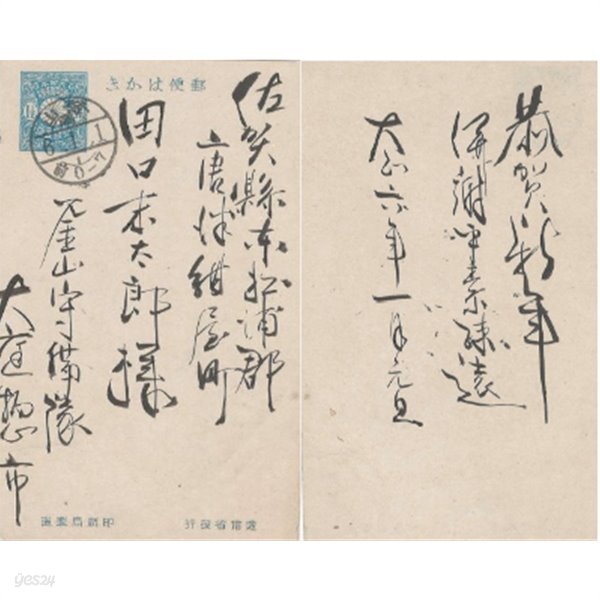 郵便はかき
佐賀縣東松浦郡
唐津紺屋町
田口末太郎様
釜山守備隊
大庭惣市
印刷局製造
逓信省發行
恭賀新年
併謝平素疎遠
大正六年一月元旦
yes24